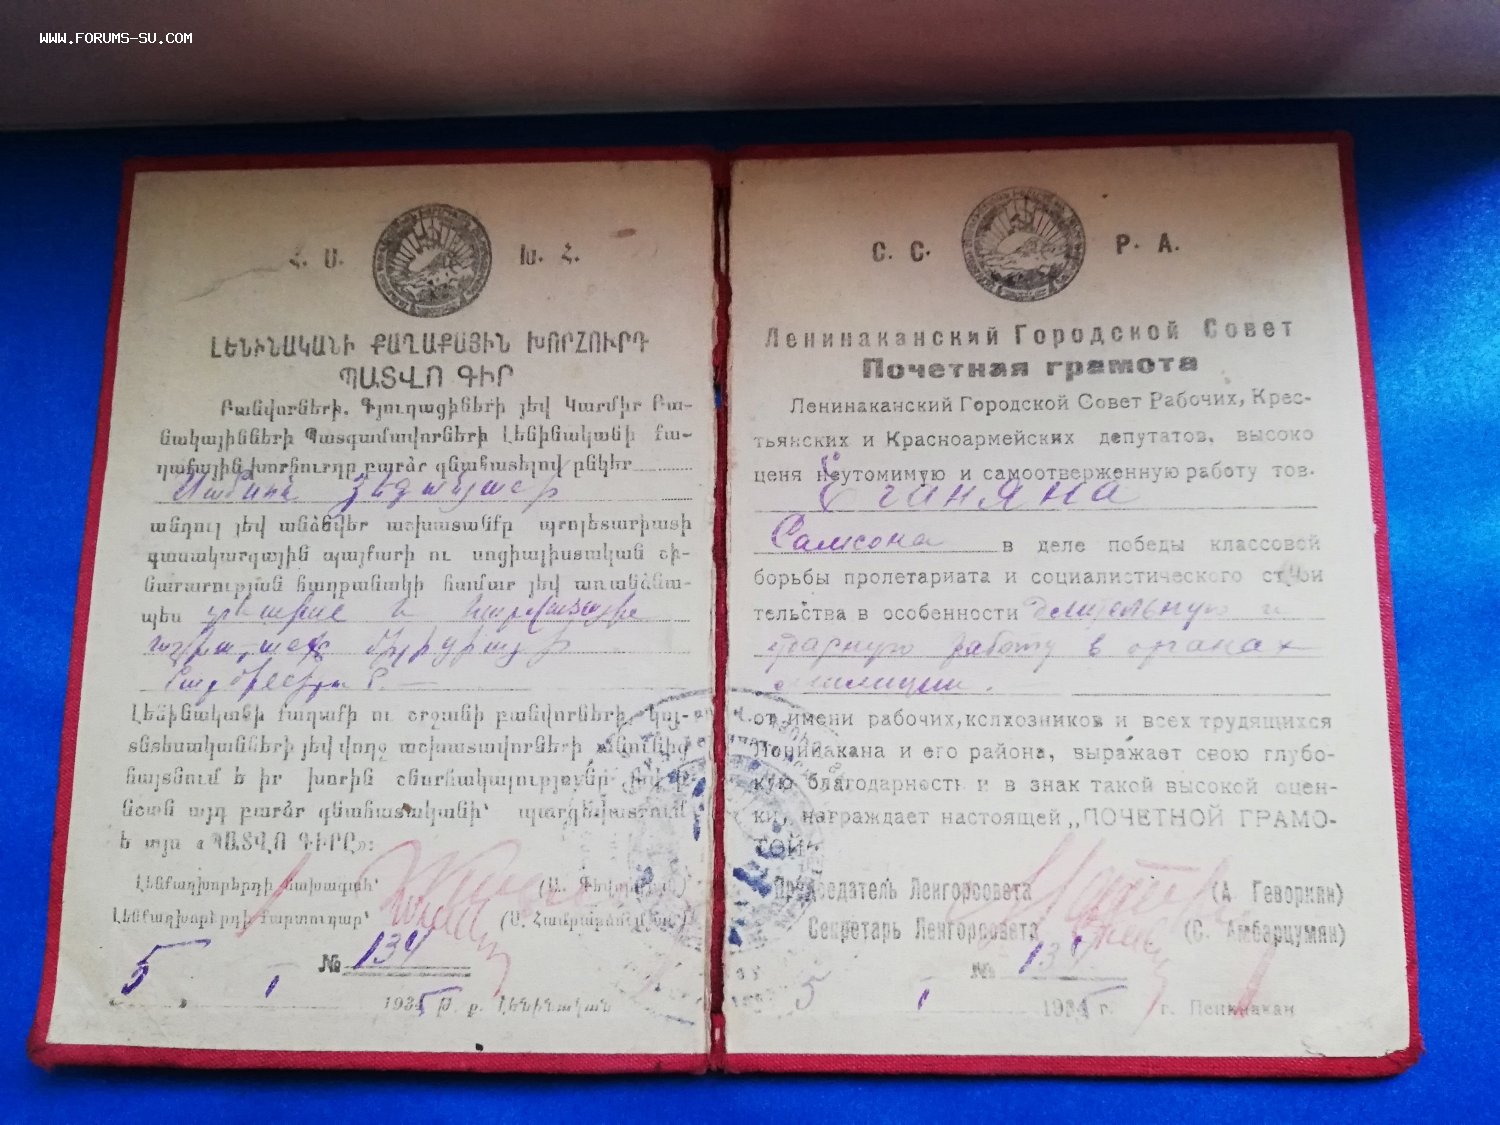 WWW.FORUMS-SU.COM
Հ. Ս. Խ. Հ.
ԼԵՆԻՆԱԿԱՆԻ ՔԱՂԱՔԱՅԻՆ ԽՈՐՀՈՒՐԴ
ՊԱՏՎՈ ԳԻՐ
Բանվորների, Գյուղացիների յեվ Կարմիր Բա-
նակայինների Պատգամավորների Լենինականի քա-
ղաքային խորհուրդը բարձր գնահատելով ընկեր
անդուլ յեվ անձնվեր աշխատանքը պրոլետարիատի
դասակարգային պայքարի ու սոցիալիստական շի-
նարարության հաղթանակի համար յեվ առանձնա-
պես
Լենինականի քաղաքի ու շրջանի բանվորների, կոլ-
տնտեսականների յեվ վողջ աշխատավորների անունից
հայտնում է իր խորին շնորհակալությունը
նշան այդ բարձր գնահատականի՝ պարգեվատրում
է այս «ՊԱՏՎՈ ԳԻՐԸ»:
Լենքաղխորհրդի նախագահ՝
Լենքաղխորհրդի քարտուղար՝
№ 134
5 I 1935 Թ. ք. Լենինական
С. С. Р. А.
Ленинаканский Городской Совет
Почетная грамота
Ленинаканский Городской Совет Рабочих, Крес-
тьянских и Красноармейских депутатов, высоко
ценя неутомимую и самоотверженную работу тов.
Еганяна
Самсона в деле победы классовой
борьбы пролетариата и социалистического строи
тельства в особенности длительную и
ударную работу в органах
милиции.
от имени рабочих, колхозников и всех трудящихся
Ленинакана и его района, выражает свою глубо-
кую благодарность и в знак такой высокой оцен-
ки, награждает настоящей „ПОЧЕТНОЙ ГРАМО-
ТОЙ"
Председатель Ленгорсовета (А. Геворкян)
Секретарь Ленгорсовета (С. Амбарцумян)
№ 134
5 I 1935 г. г. Ленинакан